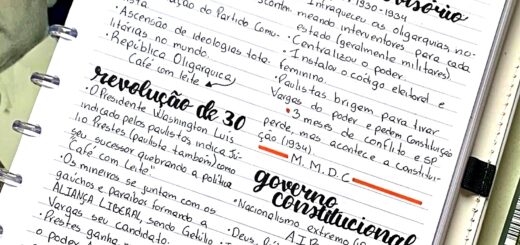 ação do Partido Comu-
ista
• Ascensão de ideologias tota-
litárias no mundo.
• República Oligárquica
Café com leite
revolução de 30
• O Presidente Washington Luis
indicado pelos paulistas indica Jú-
lio Prestes (paulista também) como
seu sucessor quebrando a política
"Café com Leite"
• Os mineiros se juntam com os
gaúchos e paraibas formando a
ALIANÇA LIBERAL sendo Getúlio
Vargas seu candidato.
• Prestes ganha
o poder
1930-1934
• Intraqueceu as oligarquias, no-
meando interventores para cada
estado (geralmente militares)
• Centralizou o poder
• Instalou o código eleitoral e
feminino.
• Paulistas brigam para tirar
Vargas do poder e pedem Constituição
• 3 meses de conflito e SP
perde, mas acontece a constitui-
ção (1934)
M.M.D.C
governo
constitucional
• Nacionalismo extremo
• Deus,
A.I.B